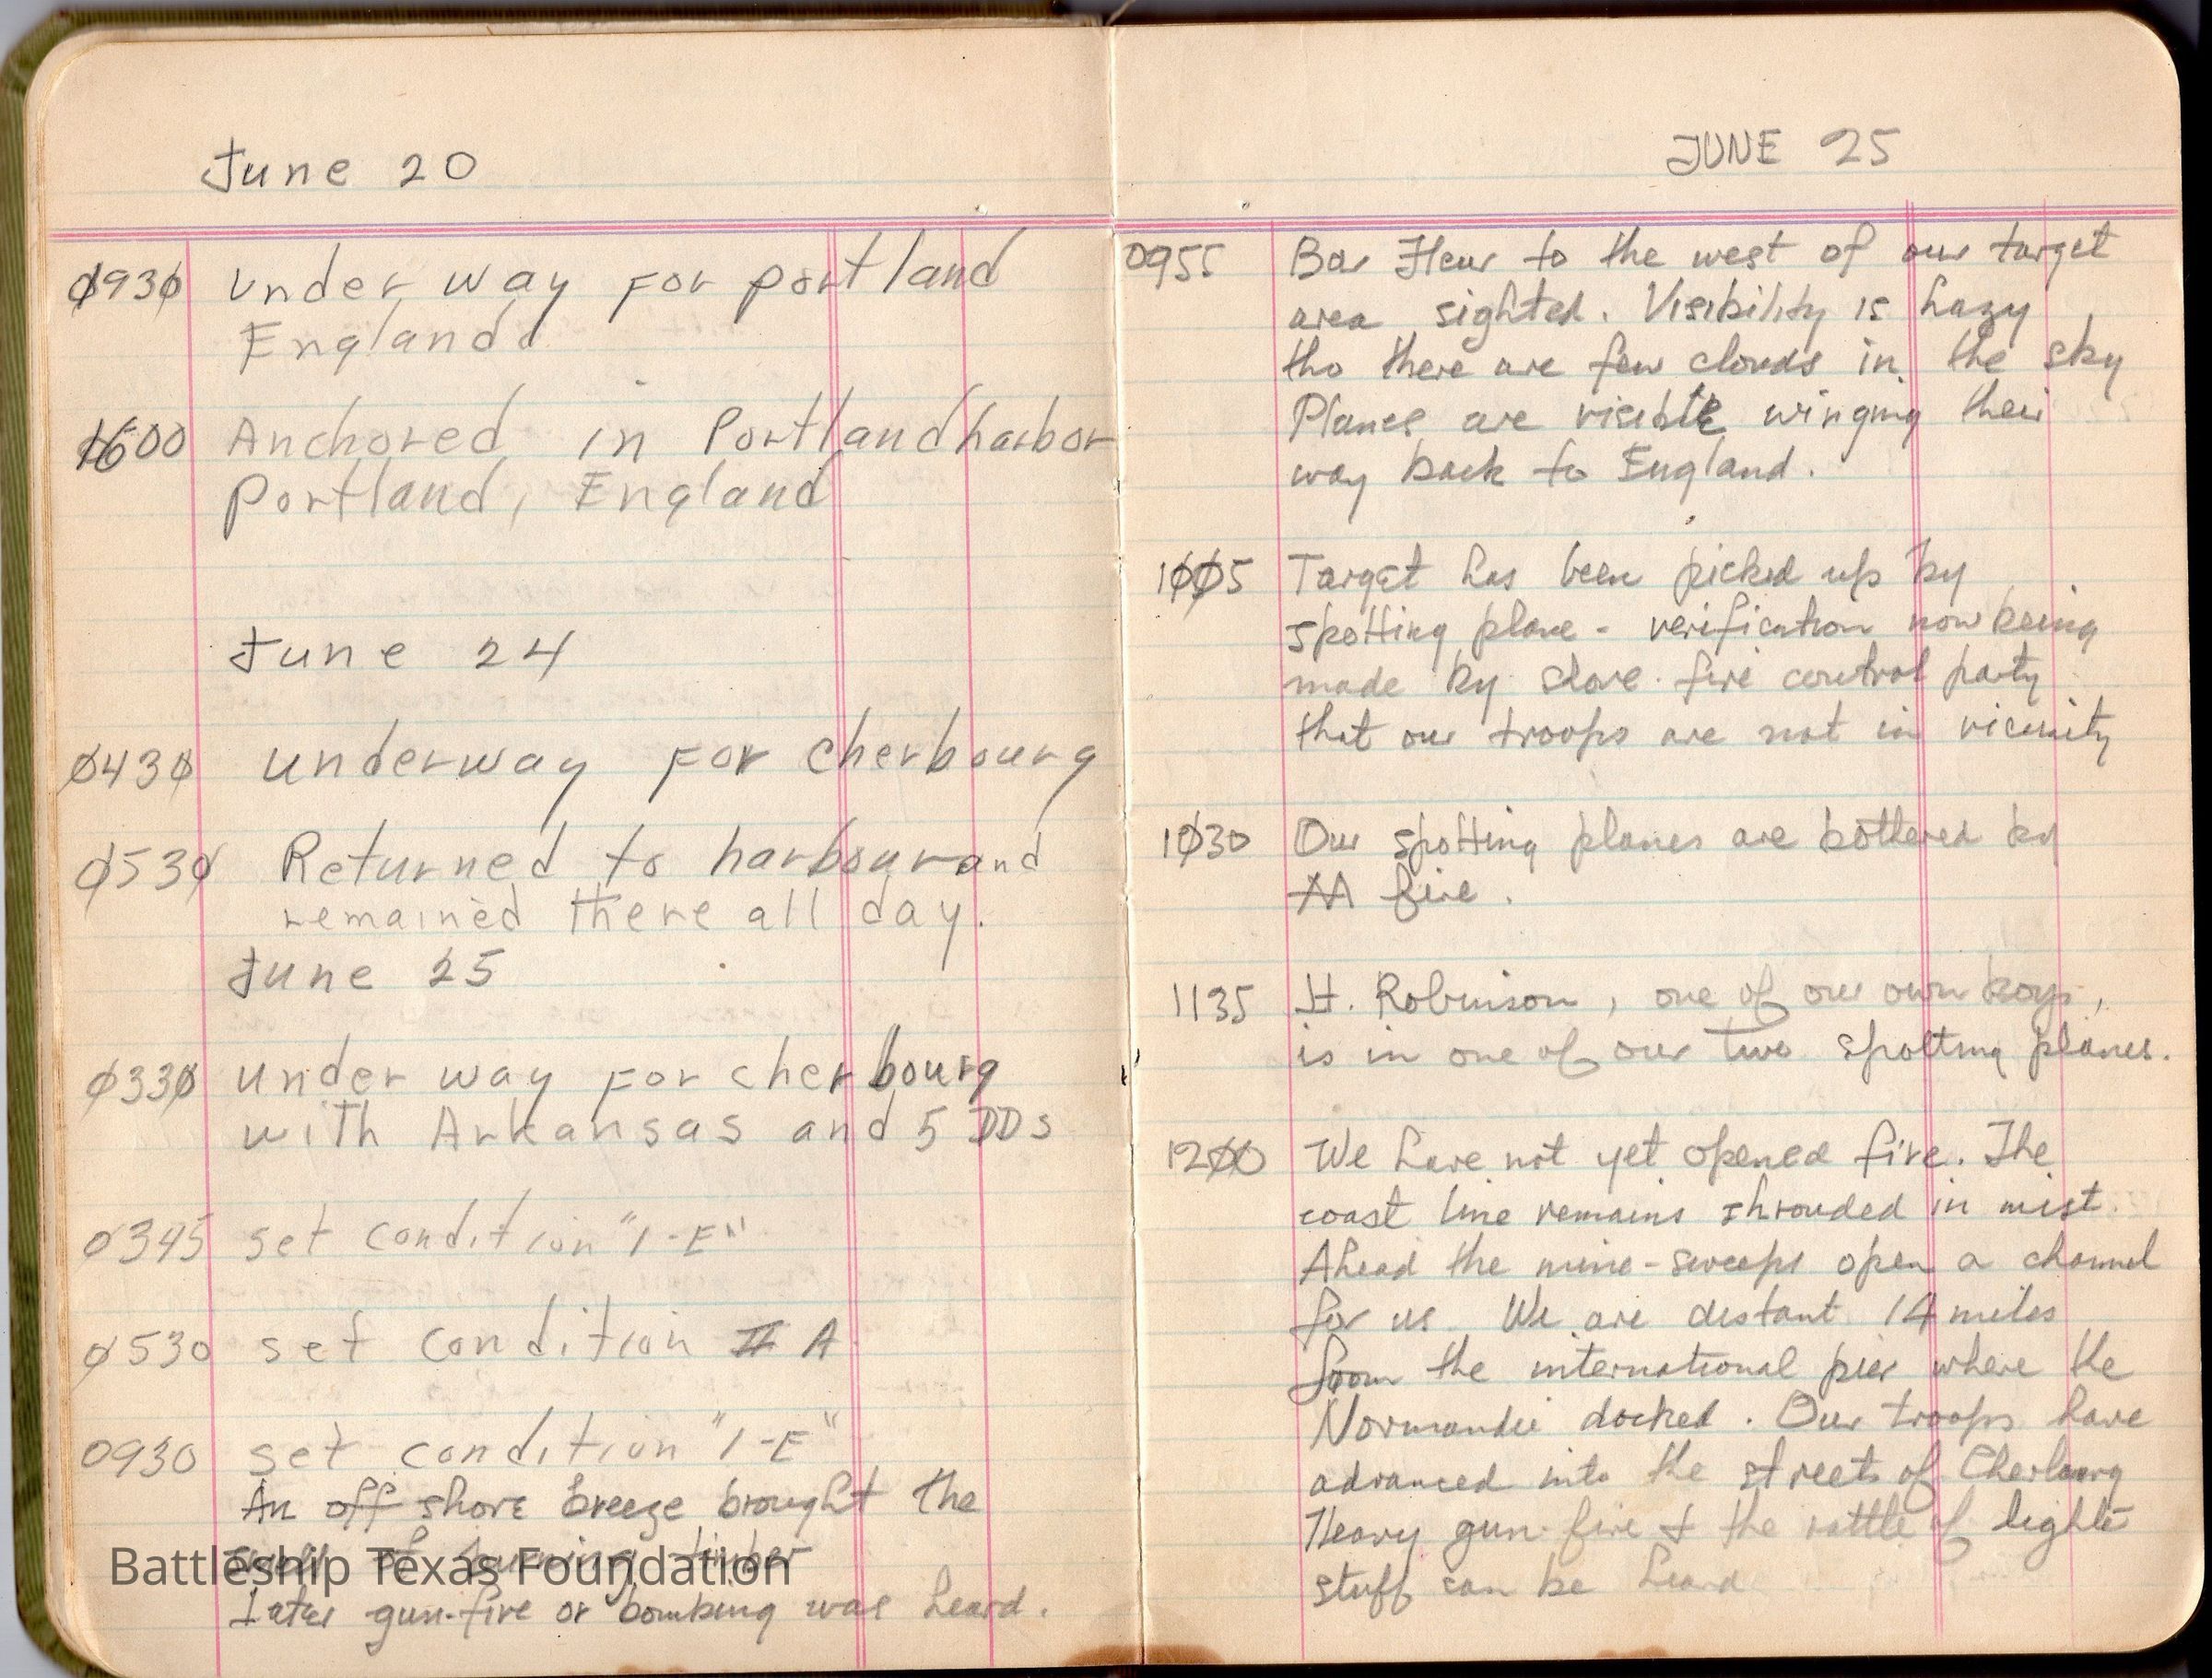 June 20
0930 Under way for portland
England
1600 Anchored in Portland harbor
Portland, England
June 24
0430 underway for cherbourg
0530 Returned to harbour and
remained there all day.
June 25
0330 under way for cherbourg
with Arkansas and 5 DDs
0345 set condition "1-E"
0530 set condition II A
0930 set condition "1-E"
An off shore breeze brought the
smell of burning timber
Later gun-fire or bombing was heard.
Battleship Texas Foundation
JUNE 25
0955 Bar Fleur to the west of our target
area sighted. Visibility is hazy
tho there are few clouds in the sky
Planes are visible winging their
way back to England.
1005 Target has been picked up by
spotting plane - verification now being
made by shore fire control party
that our troops are not in vicinity
1030 Our spotting planes are bothered by
AA fire.
1135 H. Robinson, one of our own boys,
is in one of our two spotting planes.
1200 We have not yet opened fire. The
coast line remains shrouded in mist.
Ahead the mine-sweeps open a channel
for us. We are distant 14 miles
from the international pier where the
Normandie docked. Our troops have
advanced into the streets of Cherbourg
Heavy gun-fire & the rattle of lighter
stuff can be heard